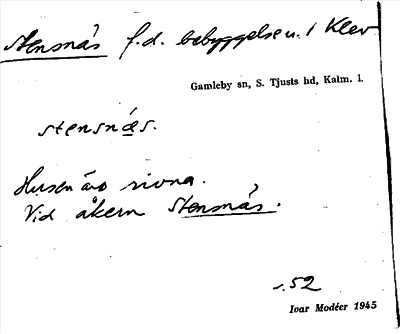 Stensnäs f.d. bebyggelse u. 1 Klev
Gamleby sn, S. Tjusts hd, Kalm. l.
stensnä̱s.
Husen äro rivna.
Vid åkern Stensnäs.
s. 52
Ivar Modéer 1945